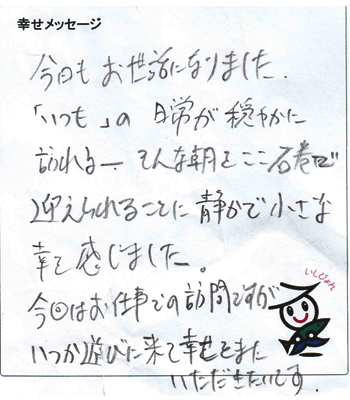 幸せメッセージ
今回もお世話になりました.
「いつも」の 日常が 穏やかに
訪れる一. そんな朝をここ石巻で
迎えられることに静かで小さな
幸を感じました。
今回はお仕事での訪問ですが
いつか遊びに来て幸せをまた
いただきたいです.